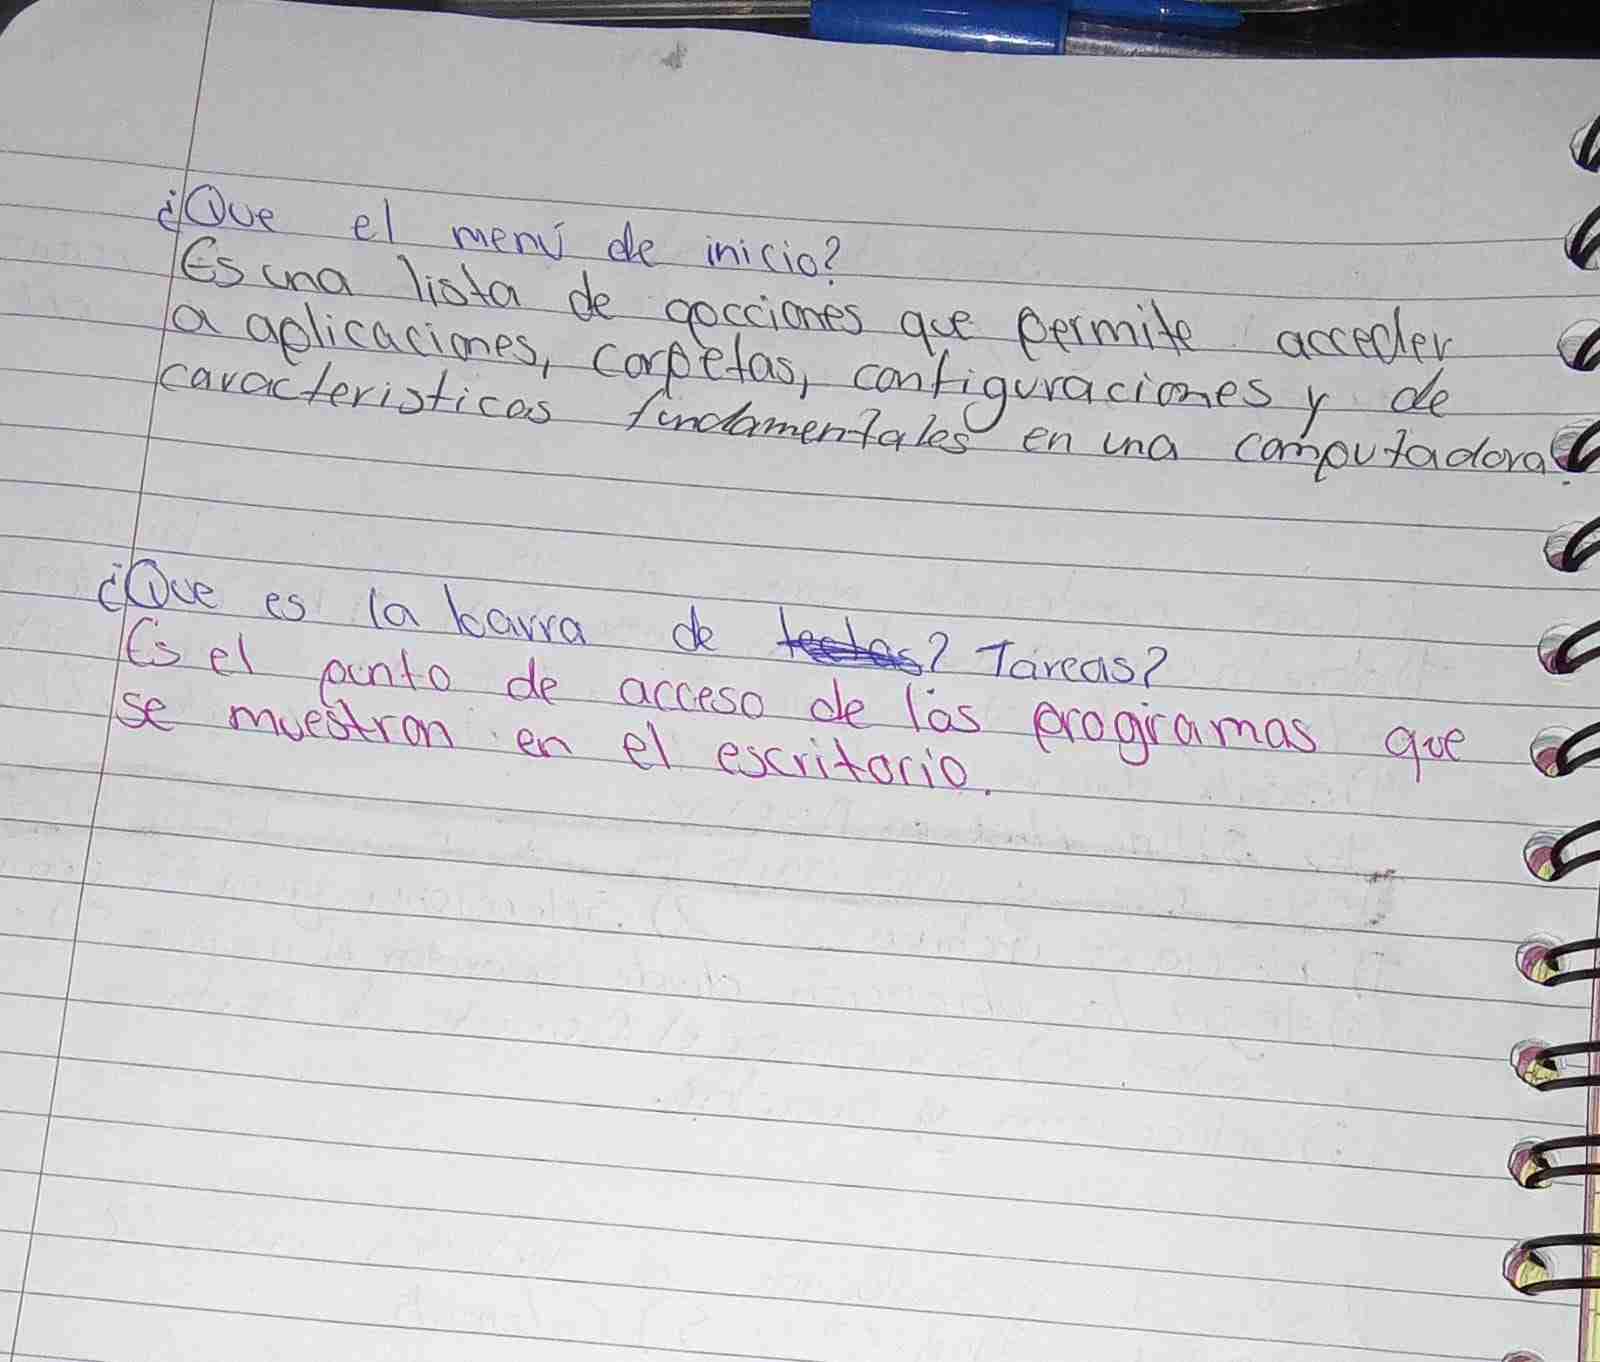 ¿Que el menú de inicio?
Es una lista de opcciones que permite acceder
a aplicaciones, carpetas, configuraciones y de
caracteristicas fundamentales en una computadora.
¿Que es la barra de ? Tareas?
Es el punto de acceso de los programas que
se muestran en el escritorio.